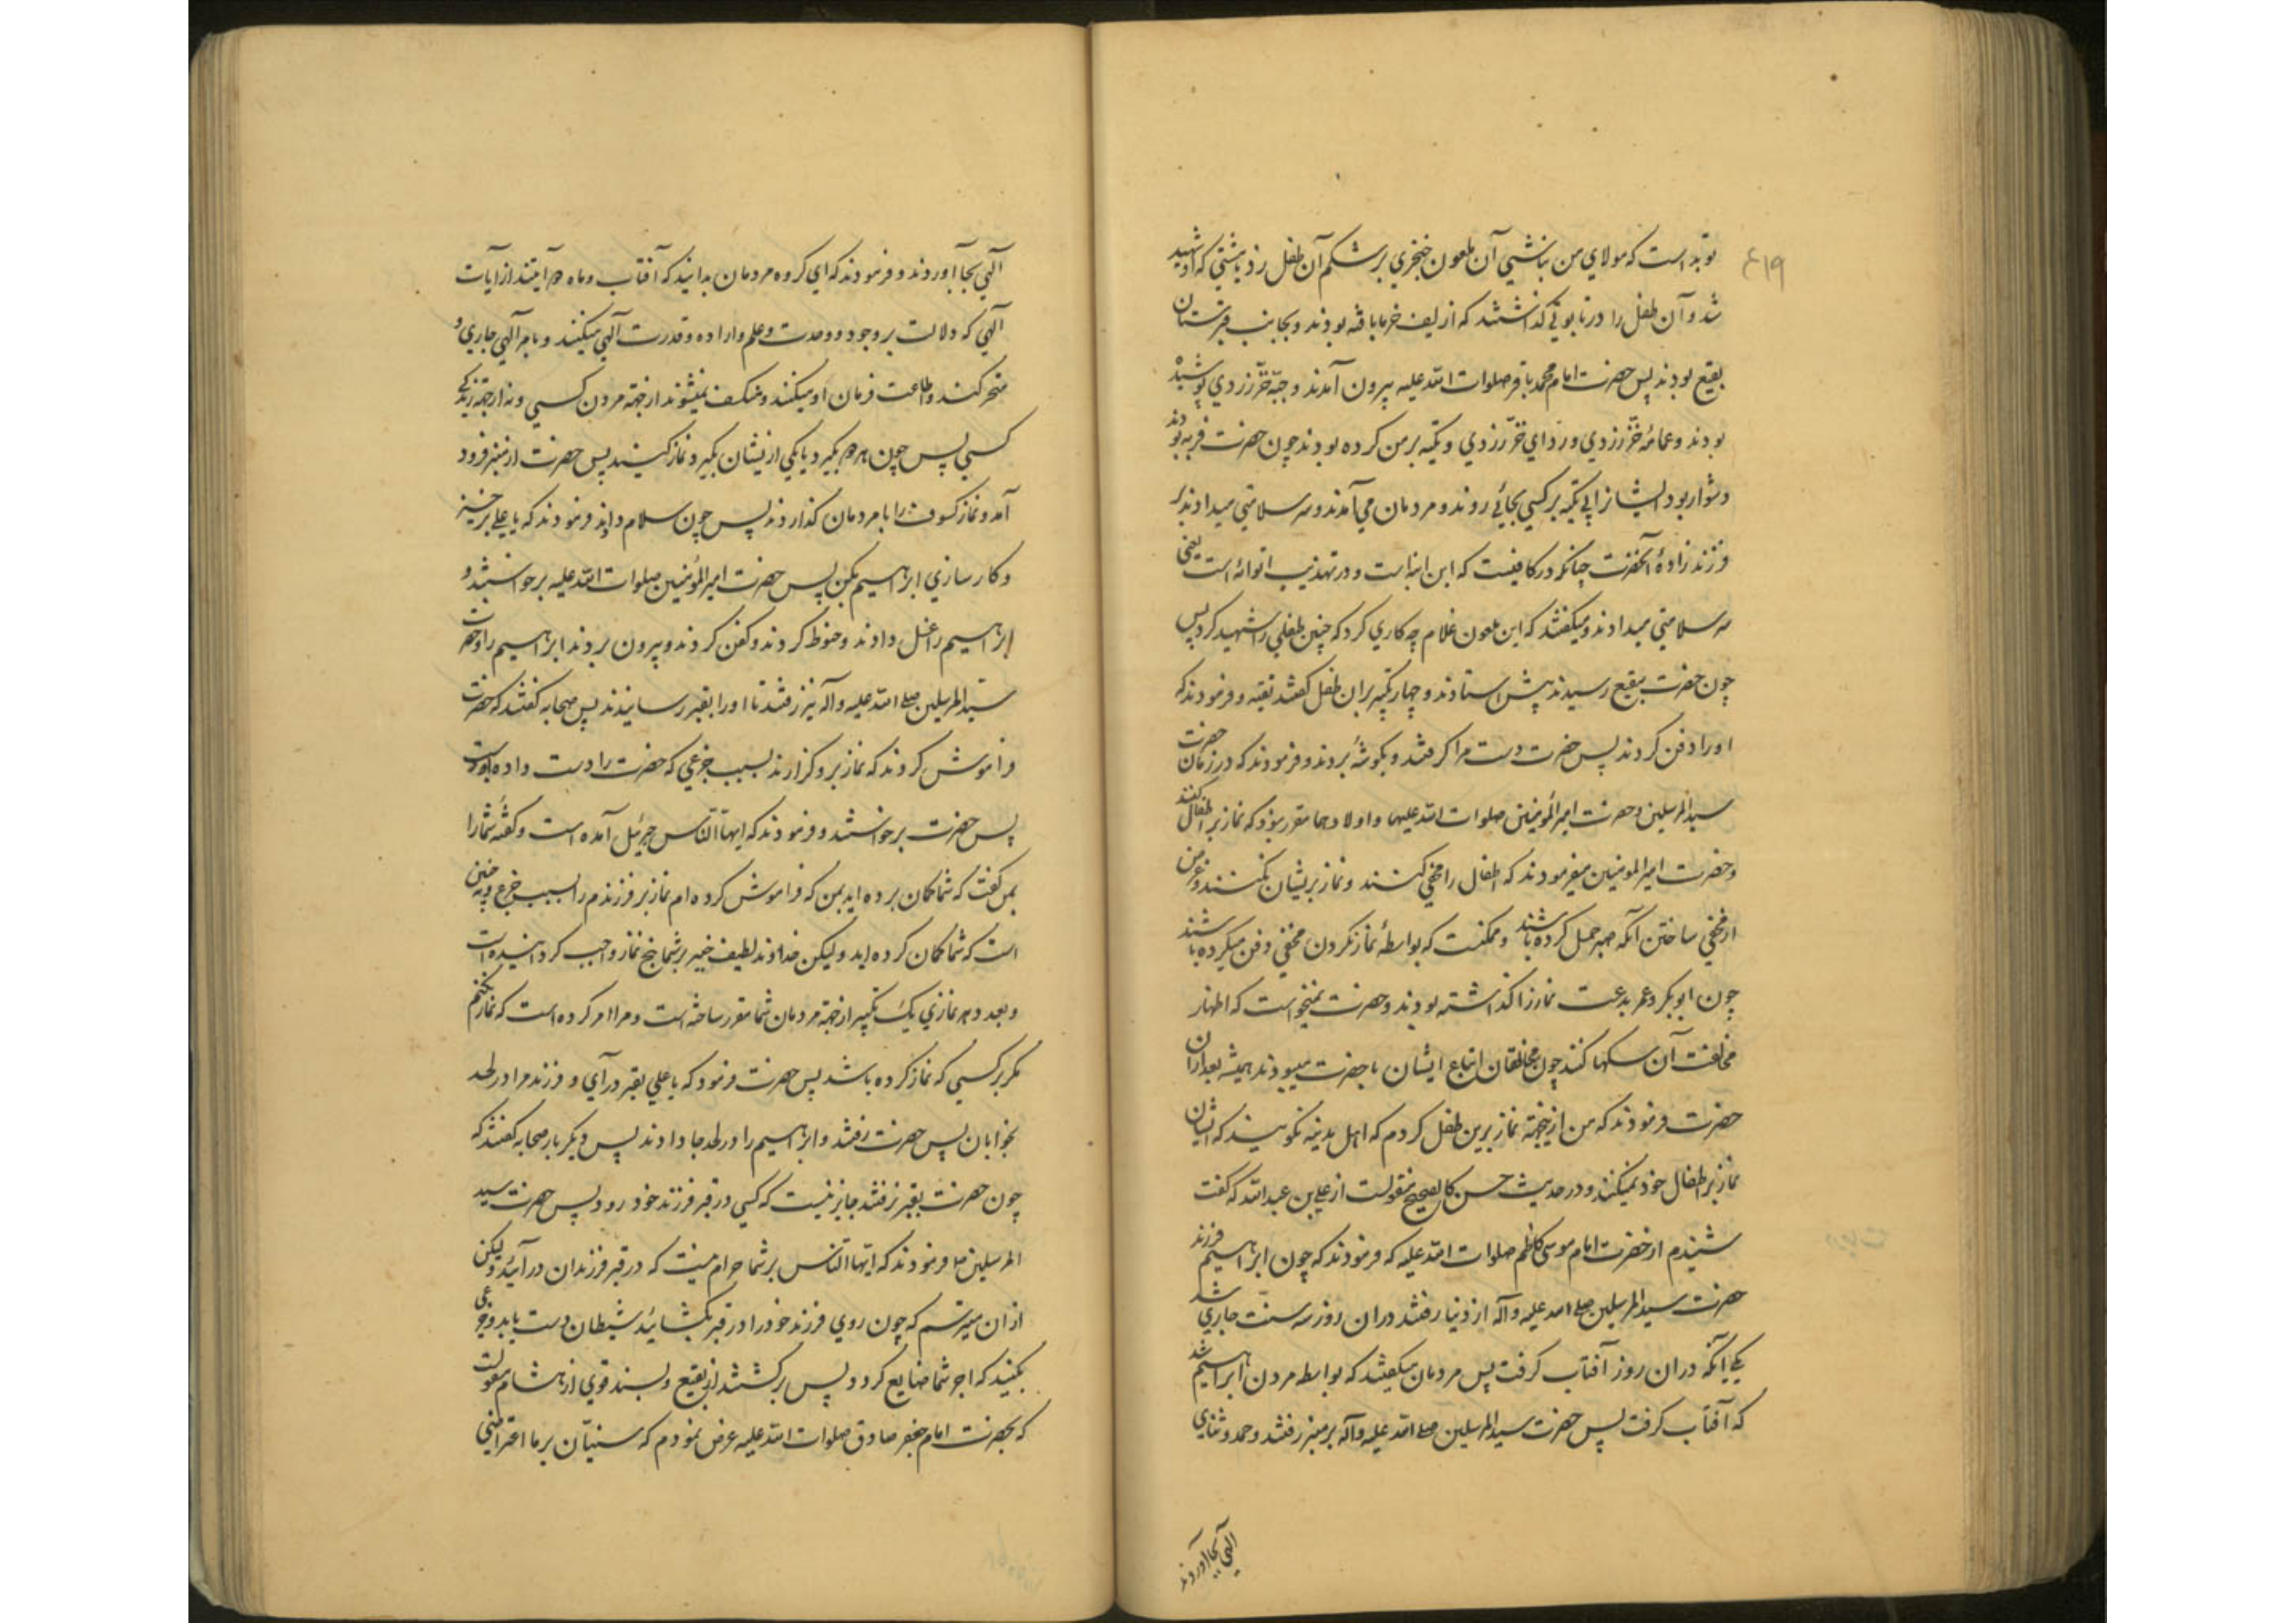 ۴۱۹
تو بد است که مولای من نباشی آن ملعون خنجری بر شکم آن طفل زد بمشتی که او شهید
شد و آن طفل را در تابوتی گذاشتند که از لیف خرما بافته بودند و بجانب قبرستان
بقیع بودند پس حضرت امام محمد باقر صلوات الله علیه بیرون آمدند و جبّه خزّ زردی پوشیده
بودند و عمامهٔ خزّ زردی و ردای خزّ زردی و تکیه بر من کرده بودند چون حضرت فربه بودند
دشوار بود ایشانرا بی تکیه بر کسی بجائی روند و مردمان می آمدند و سر سلامتی میدادند بر
فرزند زادهٔ آنحضرت چنانکه در کافیست که ابن ابنه است و در تهذیب اتوانه است یعنی
سر سلامتی میدادند و میگفتند که این ملعون غلام چه کاری کرد که چنین طفلی را شهید کرد پس
چون حضرت ببقیع رسیدند پیش استادند و چهار تکبیر بر آن طفل گفتند تقیه و فرمودند که
او را دفن کردند پس حضرت دست مرا گرفتند و بگوشهٔ بردند و فرمودند که در زمان حضرت
سید المرسلین و حضرت امیر المؤمنین صلوات الله علیهما و اولادهما مقرر نبود که نماز بر اطفال کنند
و حضرت امیر المومنین میفرمودند که اطفال را مخفی کنند و نماز بر ایشان نکنند و غرض
از مخفی ساختن آنکه صبر جمیل کرده باشند و ممکنست که بواسطهٔ نماز نکردن مخفی دفن میکرده باشند
چون ابوبکر و عمر بدعت نماز را گذاشته بودند و حضرت نمیخواست که اظهار
مخالفت آن سگها کند چون مخالفان اتباع ایشان با حضرت میبودند همیشه بعد از آن
حضرت فرمودند که من از این جهة نماز برین طفل کردم که اهل مدینه نگویند که ایشان
نماز بر اطفال خود نمیکنند و در حدیث حسن کالصحیح منقولست از علی بن عبد الله که گفت
شنیدم از حضرت امام موسی کاظم صلوات الله علیه که فرمودند که چون ابراهیم فرزند
حضرت سید المرسلین صلی الله علیه و آله از دنیا رفتند در آن روز سه سنّت جاری شد
یکی آنکه در آن روز آفتاب گرفت پس مردمان میگفتند که بواسطه مردن ابراهیم شد
که آفتاب گرفت پس حضرت سید المرسلین صلی الله علیه و آله بر منبر رفتند و حمد و ثنای
الهی بجا آوردند
الهی بجا آوردند و فرمودند که ای گروه مردمان بدانید که آفتاب و ماه دو آیتند از آیات
الهی که دلالت بر وجود و وحدت و علم و اراده و قدرت الهی میکنند و بامر الهی جاری و
متحرکند و اطاعت فرمان او میکنند و منکسف نمیشوند از جهة مردن کسی و نه از جهة زندگی
کسی پس چون هر دو بگیرد یا یکی از یشان بگیرد نماز کنید پس حضرت از منبر فرود
آمد و نماز کسوف را با مردمان گذاردند پس چون سلام دادند فرمودند که یا علی برخیز
و کار سازی ابراهیم بکن پس حضرت امیر المؤمنین صلوات الله علیه برخواستند و
ابراهیم را غسل دادند و حنوط کردند و کفن کردند و بیرون بردند ابراهیم را و حضرت
سید المرسلین صلی الله علیه و آله نیز رفتند تا او را بقبر رسانیدند پس صحابه گفتند که حضرت
فراموش کردند که نماز برو گزارند بسبب جزعی که حضرت را دست داده بود است
پس حضرت برخواستند و فرمودند که ایها النّاس جبرئیل آمده است و گفتهٔ شما را
بمن گفت که شما گمان برده اید بمن که فراموش کرده ام نماز بر فرزندم را بسبب جزع و نه چنین
است که شما گمان کرده اید ولیکن خداوند لطیف خبیر بر شما پنج نماز واجب گردانیده است
و بعدد هر نمازی یک تکبیر از جهة مردمان شما مقرر ساخته است و مرا امر کرده است که نماز نکنم
مگر بر کسی که نماز کرده باشد پس حضرت فرمود که یا علی بقبر در آی و فرزند مرا در لحد
بخوابان پس حضرت رفتند و ابراهیم را در لحد جا دادند پس دیگر بار صحابه گفتند که
چون حضرت بقبر نرفتند جایز نیست که کسی در قبر فرزند خود رود پس حضرت سید
المرسلین ص فرمودند که ایّها النّاس بر شما حرام نیست که در قبر فرزندان در آئید و لیکن
از ان میترسم که چون روی فرزند خود را در قبر بگشائید شیطان دست یابد و جزعی
بکنید که اجر شما ضایع گردد پس برگشتند از بقیع و بسند قوی از هشام منقولست
که بحضرت امام جعفر صادق صلوات الله علیه عرض نمودم که سنیّان بر ما اعتراضی